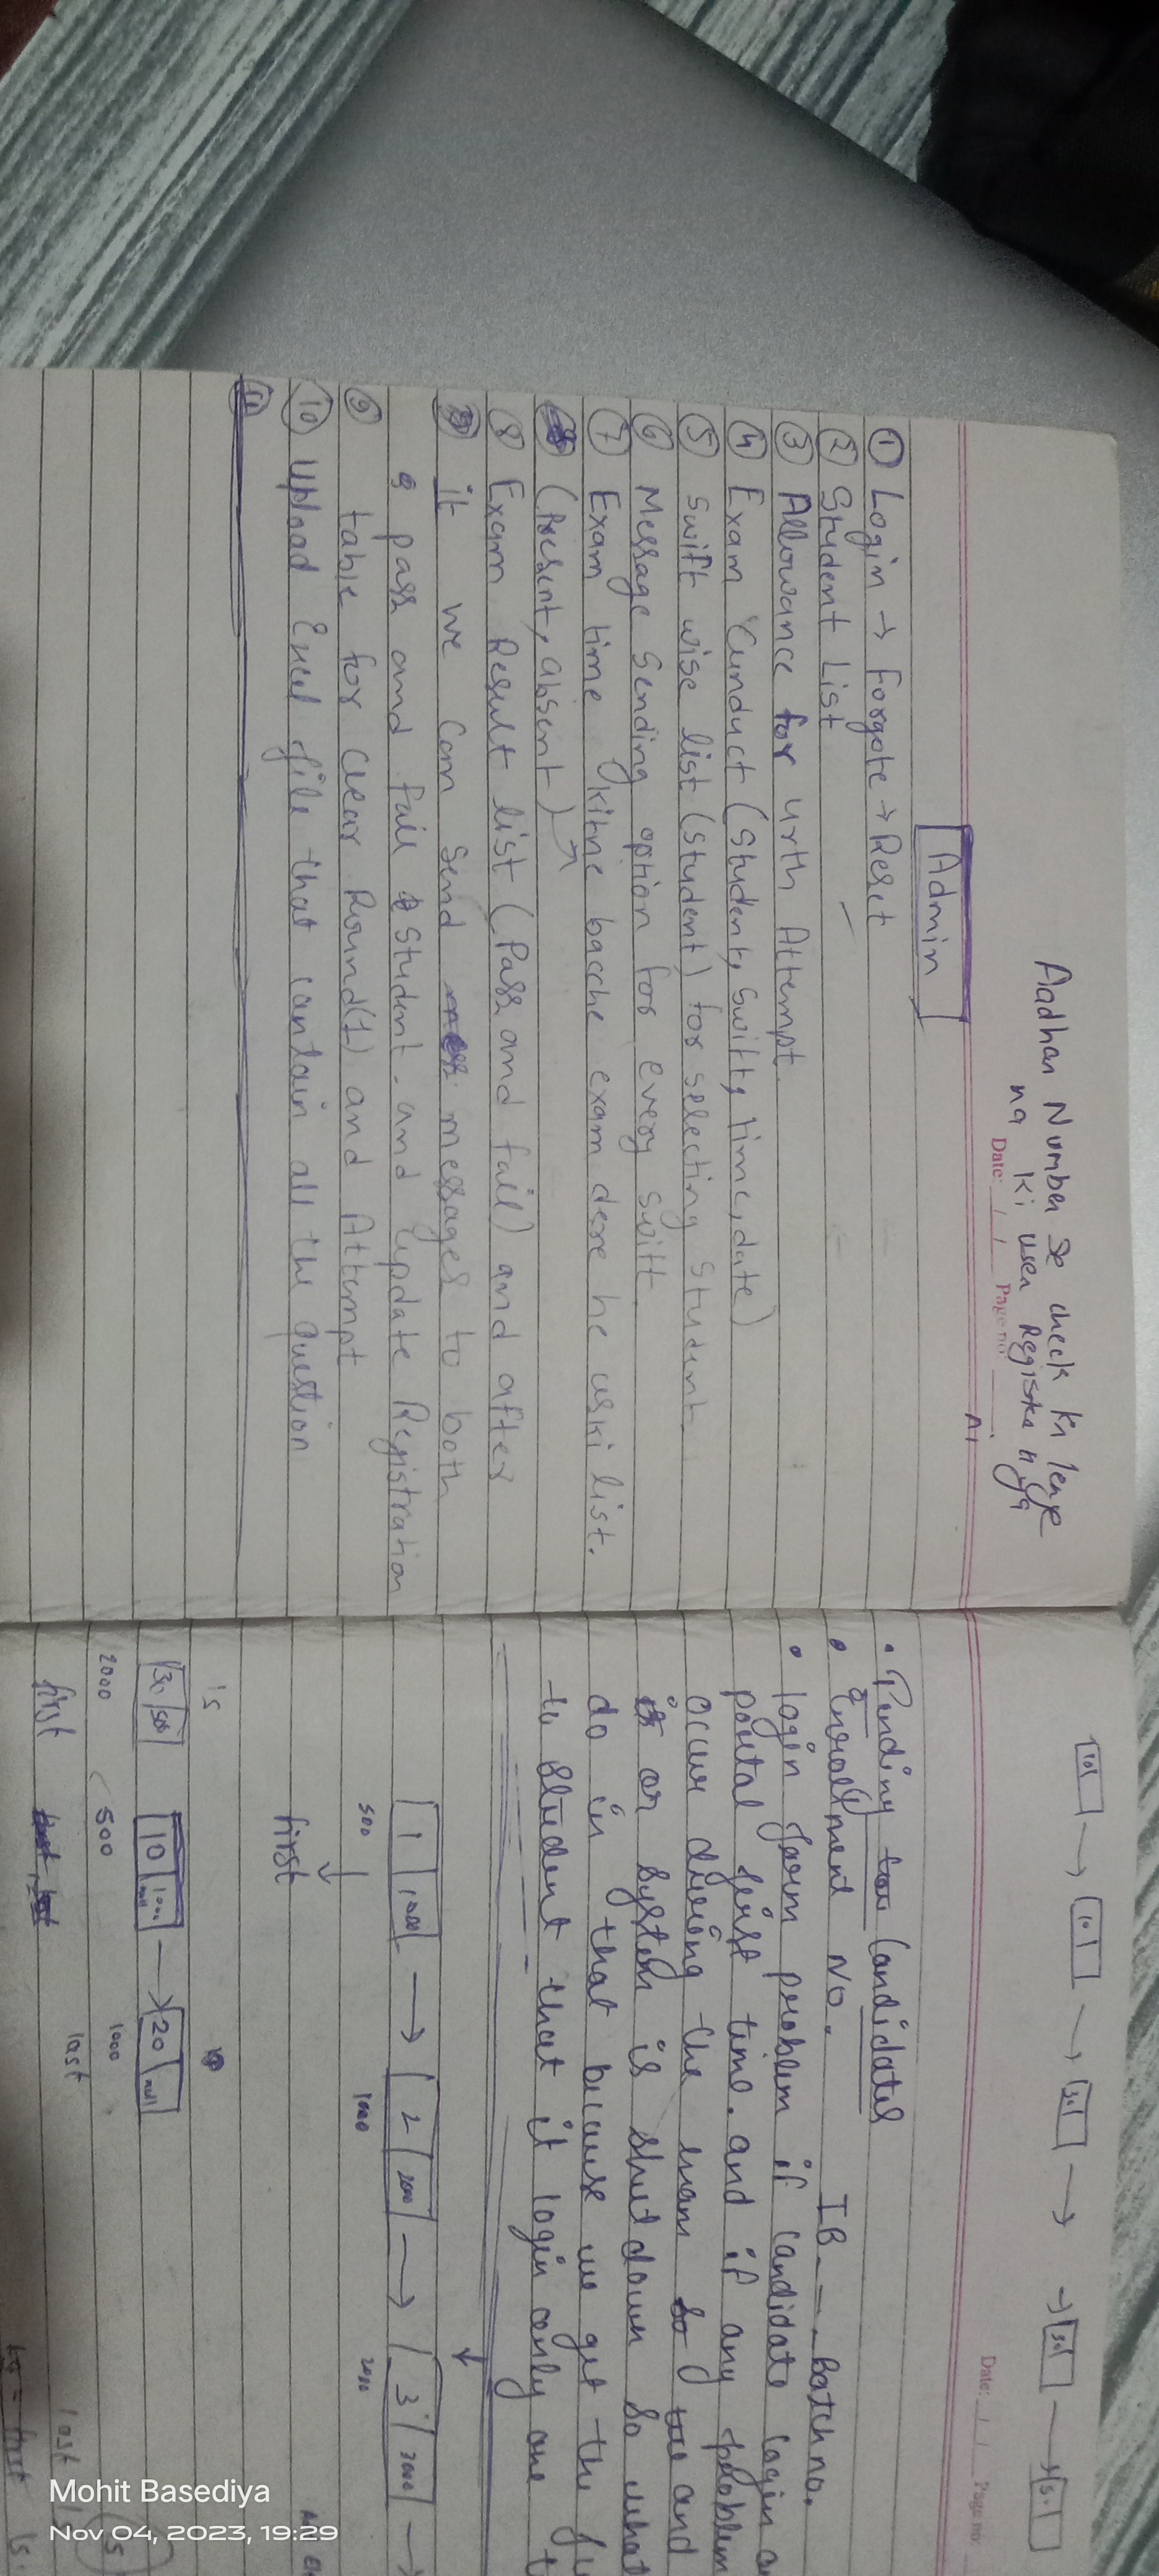 Aadhar Number se check kr lenge
na ki user Registra h ya
ni
Date: / / Page no:
Admin
① Login → Forgote → Reset
② Student List
③ Allowance for 4rth Attempt
④ Exam Cunduct (Student, Swift, time, date)
⑤ Swift wise list (Student) for selecting Student
⑥ Message Sending option for every Swift
⑦ Exam time kitne bacche exam dere he uski list.
(Present, absent)
⑧ Exam Result list (Pass and fail) and after
it we can Send messages to both
pass and fail Student. and update Registration
⑨ table for clear Round(1) and Attempt
⑩ Upload Excel file that contain all the question
⑪
10 → 10 → 30 → → 30 → 5
Date: / / Page no:
• Pending Candidates
• Enrollment NO. IB - - - Batch no.
• login form problem if candidate login
portal first time. and if any problem
occur during the exam and
or system is shut down so what
do in that because we get the
to student that it login only one
1 1000 → 2 2000 → 3 3000 →
500 1000 2000
first
15
30 500 10 1000 null → 20 null
2000 500 1000
first last
last
= first 15
Mohit Basediya
Nov 04, 2023, 19:29